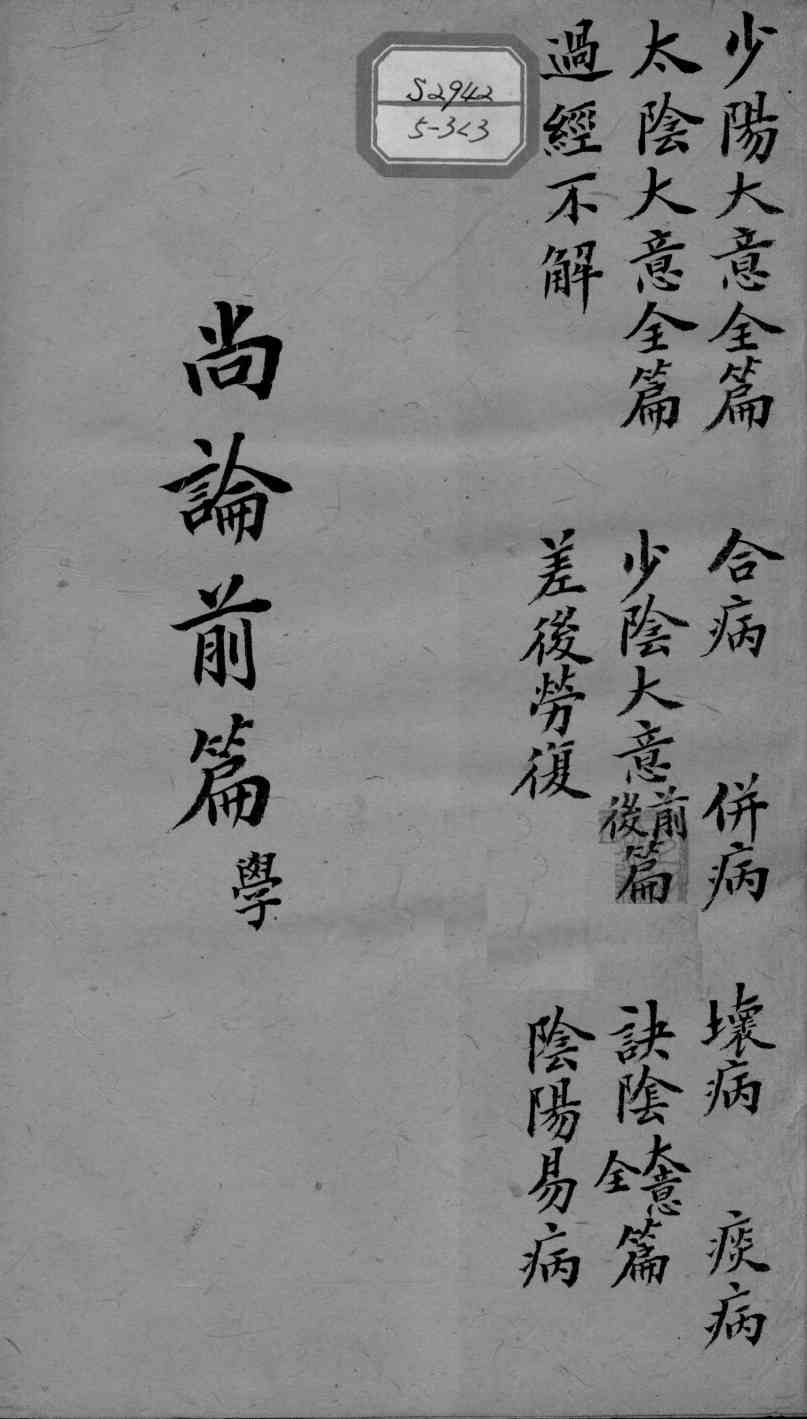 少陽大意全篇 合病 併病 壞病 痰病
太陰大意全篇 少陰大意前後篇 訣陰大意全篇
過經不解 差後勞復 陰陽易病
S2942
5-3<3
尚論前篇 學